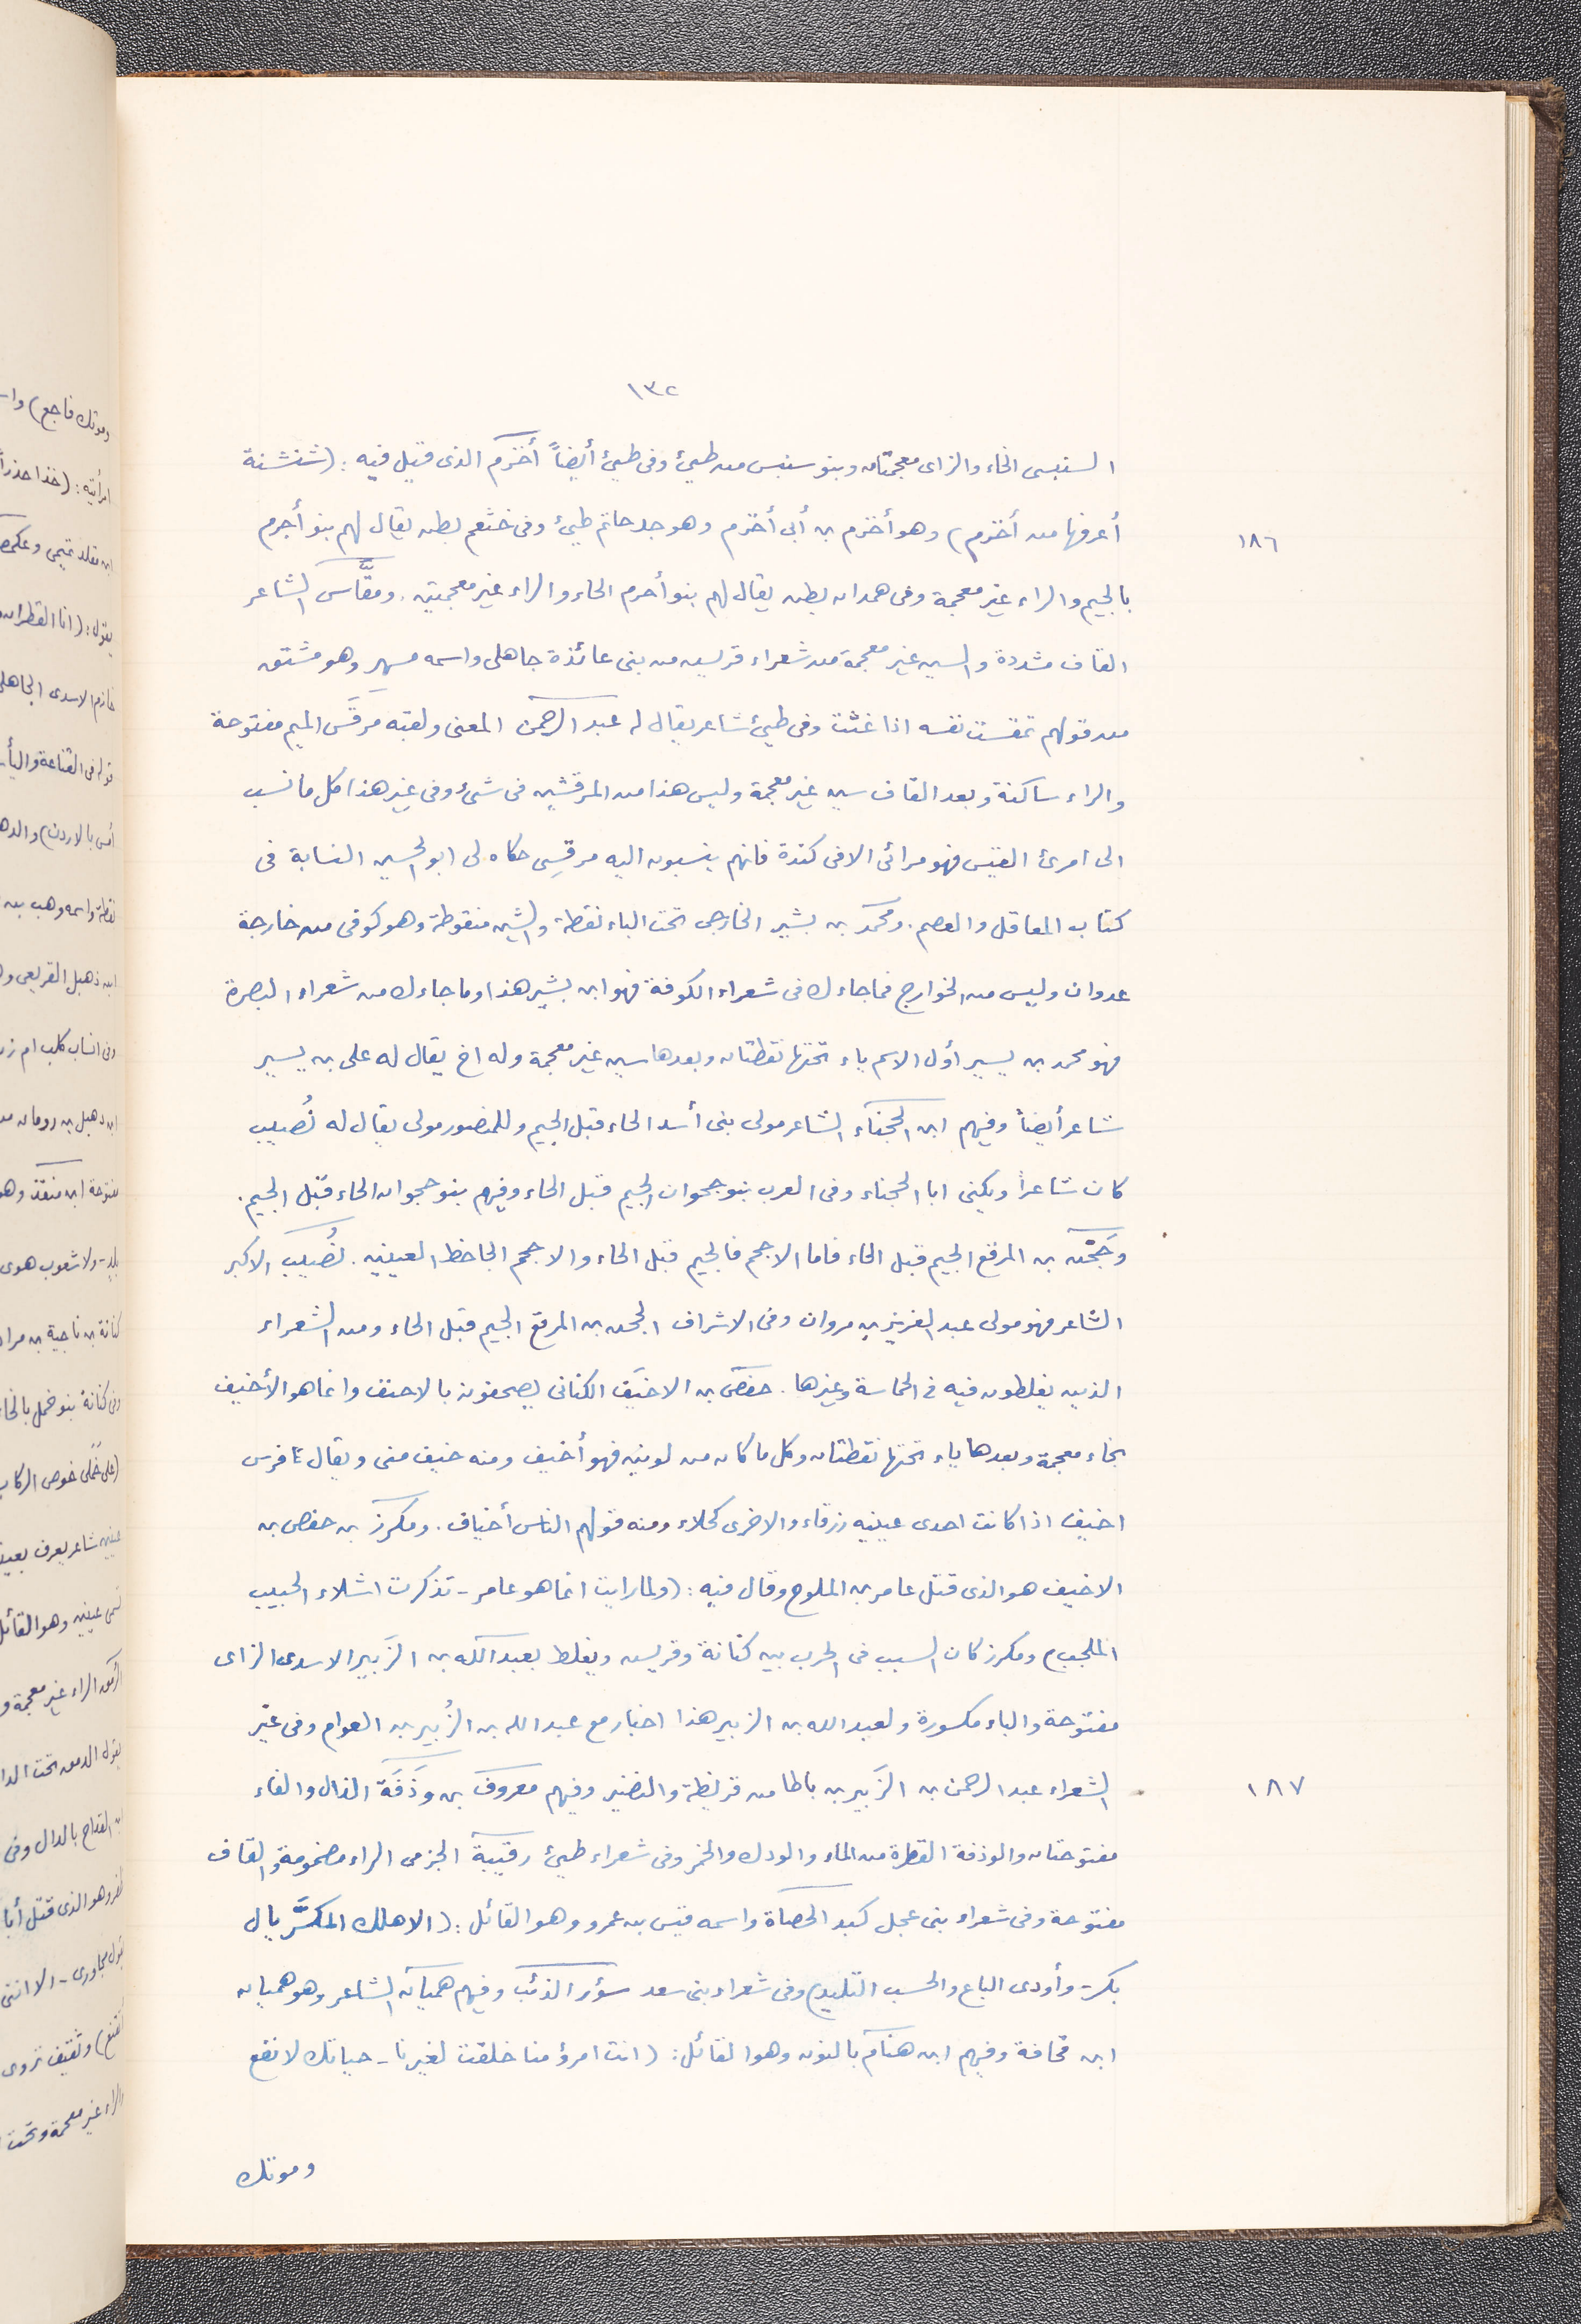 ١٣٢
السنبسى الخاء والزاى معجمتان وبنو سنبس من طيئ وفى طيئ أيضاً أخزم الذى قيل فيه : (شنشنة
أعرفها من أخزم) وهو أخزم بن أبى أخزم وهو جد حاتم طيئ وفى خثعم بطن يقال لهم بنو أجرم
١٨٦
بالجيم والراء غير معجمة وفى همدان بطن يقال لهم بنو أحرم الحاء والراء غير معجمتين . ومقَّاس الشاعر
القاف مشددة والسين غير معجمة من شعراء قريش من بنى عائذة جاهلى واسمه مسهر وهو مشتق
من قولهم تمقست نفسه اذا غثت وفى طيئ شاعر يقال له عبد الرحمن المعنى ولقبه مرقَس الميم مفتوحة
والراء ساكنة وبعد القاف سين غير معجمة وليس هذا من المرقشين فى شئ وفى غير هذا كل ما نسب
الى امرئ القيس فهو مرائى الا فى كندة فانهم ينسبون اليه مرقسِى حكاه لى ابو الحسين النسابة فى
كتاب المعاقل والعصم . ومحمد بن بشير الخارجى تحت الباء نقطة والشين منقوطة وهو كوفى من خارجة
عدوان وليس من الخوارج فما جاءك فى شعراء الكوفة فهو ابن بشير هذا وما جاءك من شعراء البصرة
فهو محمد بن يسير أول الاسم ياء تحتها نقطتان وبعدها سين غير معجمة وله اخ يقال له على بن يسير
شاعر أيضاً وفيهم ابن الحجناء الشاعر مولى بنى أسد الحاء قبل الجيم وللمنصور مولى يقال له نُصيب
كان شاعراً ويكنى ابا الحجناء وفى العرب بنو جحوان الجيم قبل الحاء وفيهم بنو حجوان الحاء قبل الجيم .
وجَحّن بن المرقع الجيم قبل الحاء فاما الاجحم فالجيم قبل الحاء والاجحم الجاحظ العينين . نُصيب الاكبر
الشاعر فهو مولى عبد العزيز بن مروان وفى الاشراف الجحن بن المرقع الجيم قبل الحاء ومن الشعراء
الذين يغلطون فيه فى الحماسة وغيرها . حفص بن الاخيَف الكنانى يصحفونه بالاحنف وانما هو الأخيف
بخاء معجمة وبعدها ياء تحتها نقطتان وكل ما كان من لونين فهو أخيف ومنه خيف منى ويقال فرس
اخيف اذا كانت احدى عينيه زرقاء والاخرى كحلاء ومنه قولهم الناس أخياف . ومكرز بن حفص بن
الاخيف هو الذى قتل عامر بن الملوح وقال فيه : (ولما رايت انما هو عامر - تذكرت اشلاء الحبيب
الملحب) ومكرز كان السبب فى الحرب بين كنانة وقريش ويغلط بعبد الله بن الزَبير الاسدى الزاى
مفتوحة والباء مكسورة ولعبد الله بن الزبير هذا اخبار مع عبد الله بن الزُبير بن العوام وفى غير
الشعراء عبد الرحمن بن الزَبير بن باطا من قريظة والنضير وفيهم معروف بن وَذَفَة الذال والفاء
١٨٧
مفتوحتان والوذفة القطرة من الماء والودك والخمر وفى شعراء طيئ رقيبة الجرمى الراء مضمومة والقاف
مفتوحة وفى شعراء بنى عجل كبد الحصاة واسمه قيس بن عمرو وهو القائل : (الا هلك المكسَّر يال
بكر - وأودى الباع والحسب التليد) وفى شعراء بنى سعد سؤر الذئب وفيهم هميان الشاعر وهو هميان
ابن قحافة وفيهم ابن هنام بالنون وهو القائل : (انت امرؤ منا خلقت لغيرنا - حياتك لا نفع
وموتك